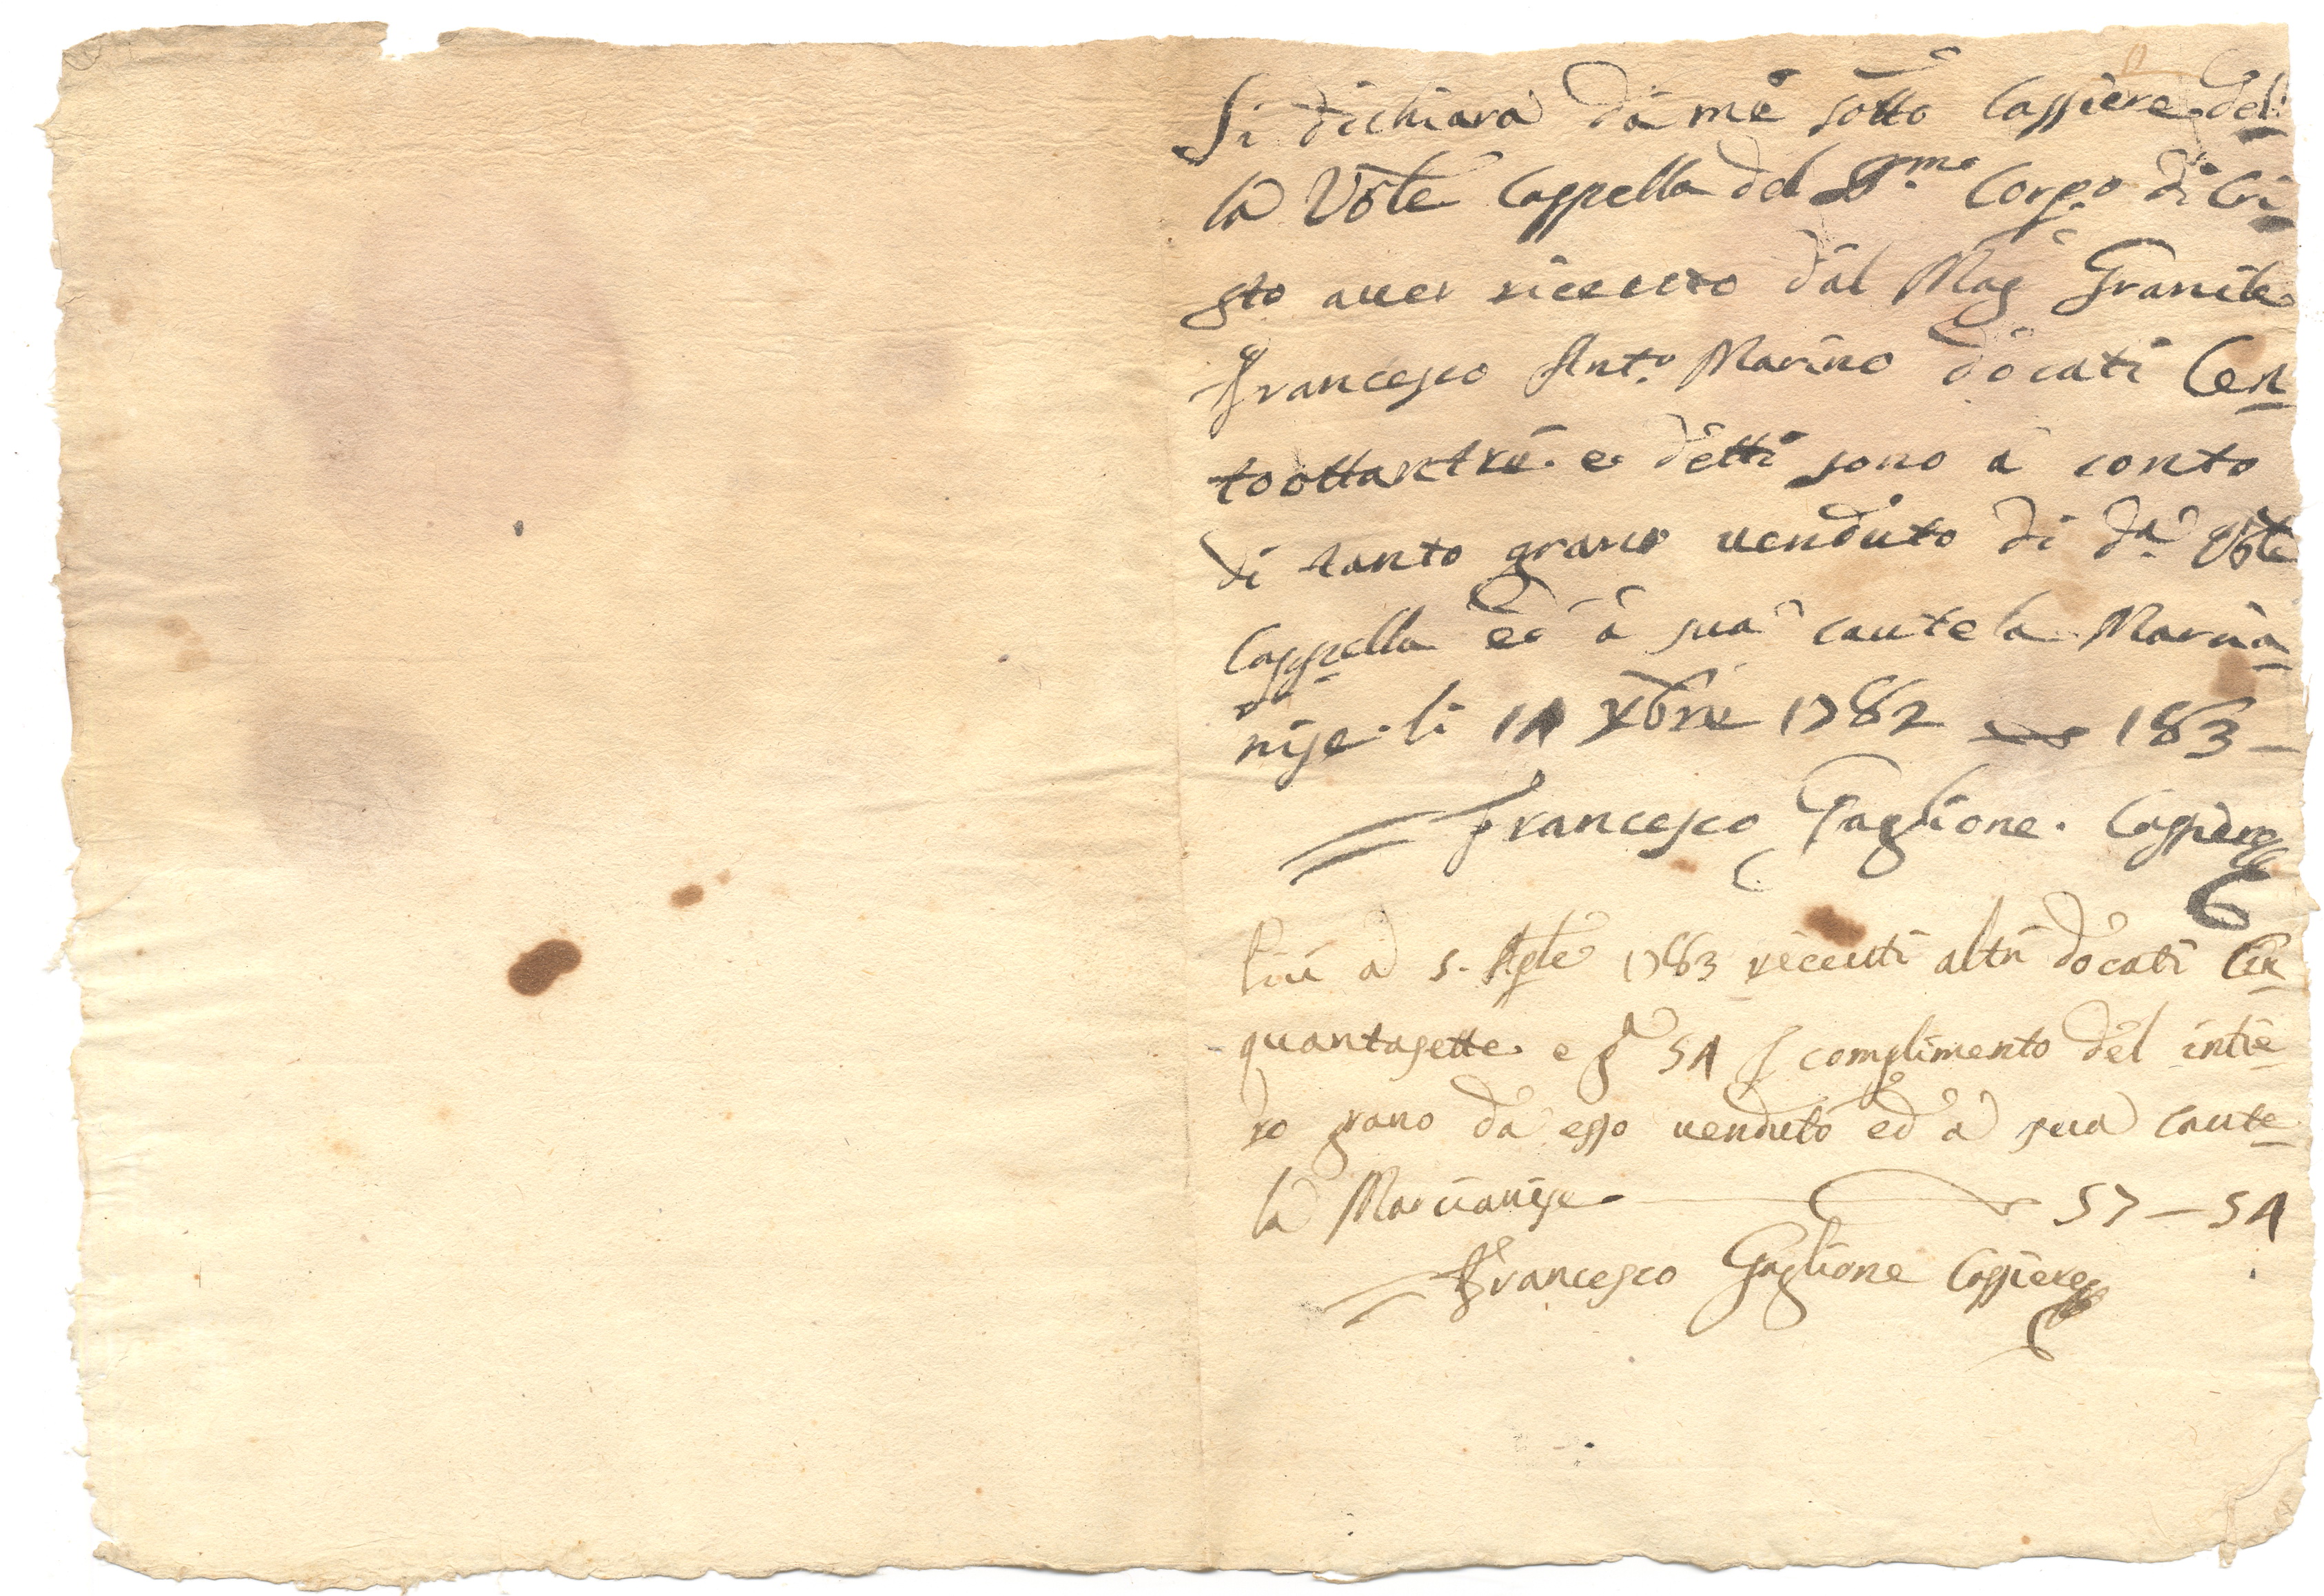 Si dichiara da me sotto Cassiere del
la Vble Cappella del SSmo Corpo di Cri
sto aver riceuto dal Mag Granile
Francesco Anto Marino docati Cen
toottantré e detti sono à conto
di tanto grano uenduto di da Vble
Cappella ed à sua cautela Marcia
nise li 14 Xbre 1782 183
Francesco Gaglione Cassiere
Piu a 5 Aple 1783 receuti altri docati Cin
quantasette e gr 54 complimento del intie
ro grano da esso uenduto ed a sua caute
la Marcianise 57 — 54
Francesco Gaglione Cassiere